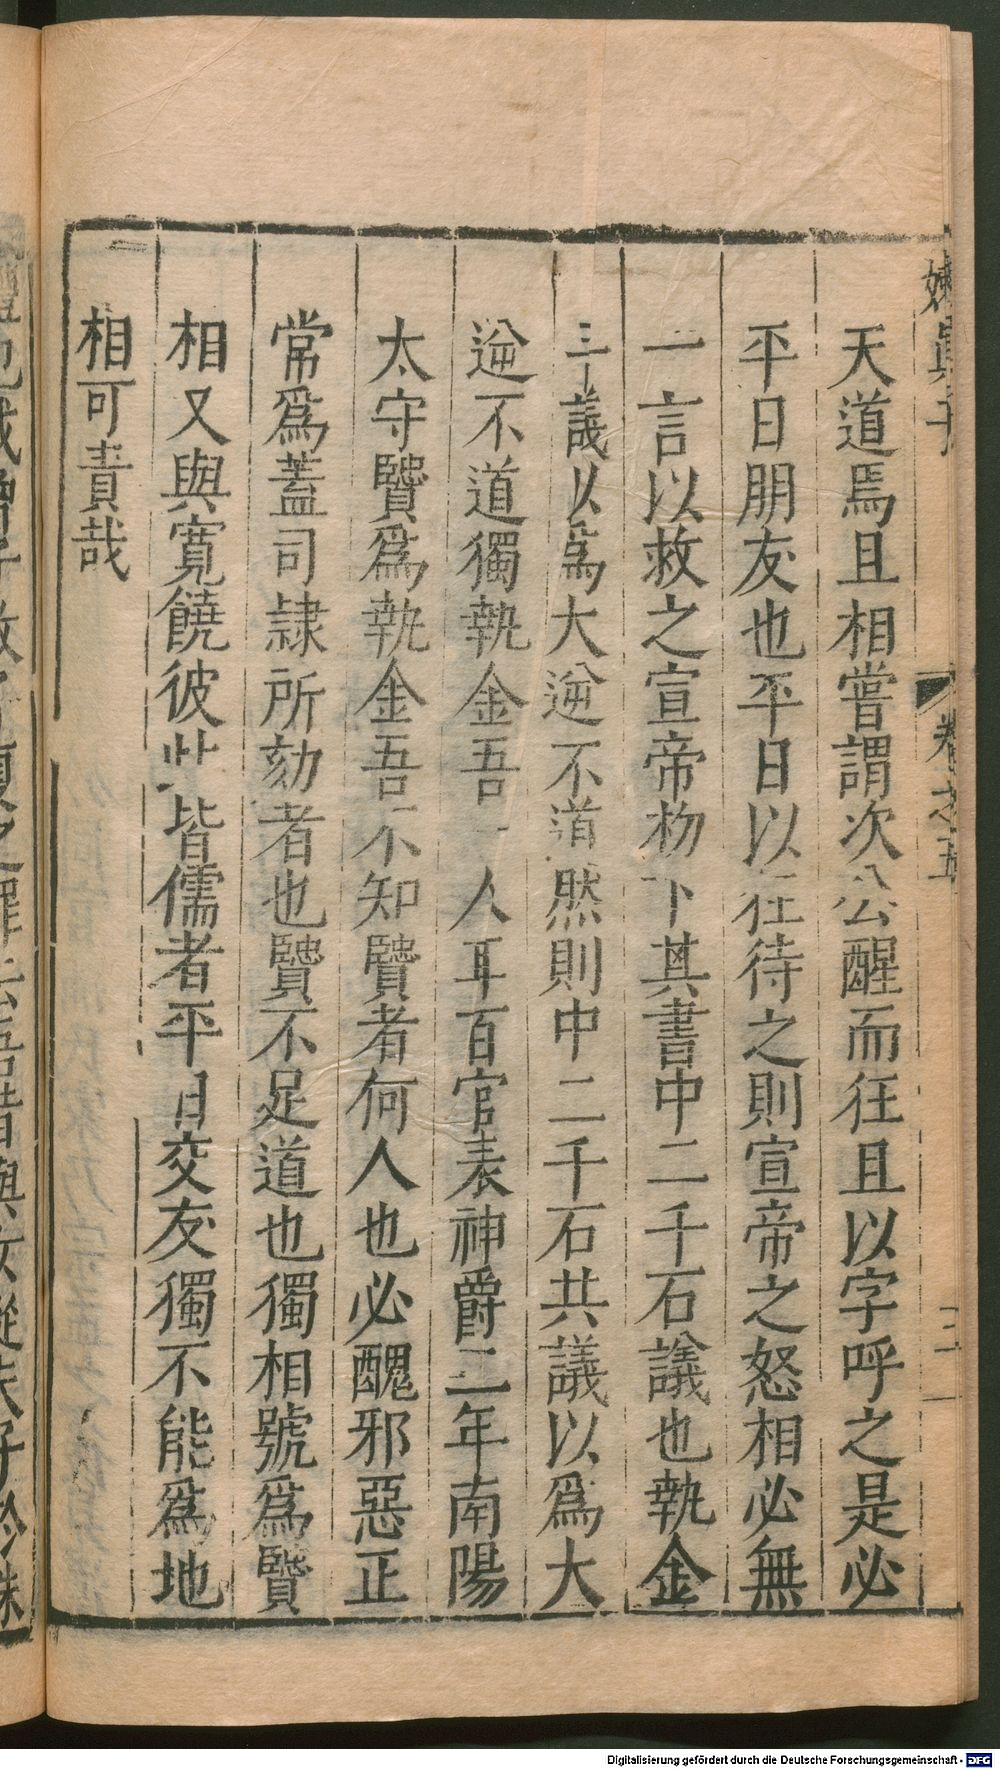 嬾眞子
卷之五
天道焉且相嘗謂次公醒而狂且以字呼之是必
平日朋友也平日以狂待之則宣帝之怒相必無
一言以救之宣帝枌下其書中二千石議也執金
議以爲大逆不道然則中二千石共議以爲大
逆不道獨執金吾一人耳百官表神爵二年南陽
太守賢爲執金吾不知賢者何人也必醜邪惡正
常爲蓋司隸所劾者也賢不足道也獨相號爲賢
相又與寬饒彼此皆儒者平日交友獨不能爲地
相可責哉
Digitalisierung gefördert durch die Deutsche Forschungsgemeinschaft - DFG